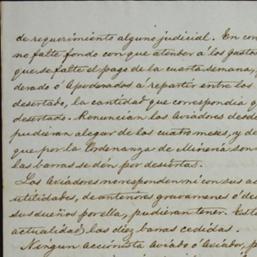 de requerimiento alguno judicial. En con
no falte fondo con que atender á los gastos
que se falte el pago de la cuarta semana,
denado ó Apoderados á repartir entre los
desertado, la cantidad que correspondia
desertado. Renuncian los Aviadores desde
pudieran alegar de los cuatro meses, y de
que por la Ordenanza de Minería son
las barras se dén por desiertas.
Los Aviadores no responden ni con sus a
utilidades, de anteriores gravamenes ó de
sus dueños por ella, pudieran tener. Está
actualidad, las diez barras cedidas.
Ningun accionista aviado ó Aviador, p